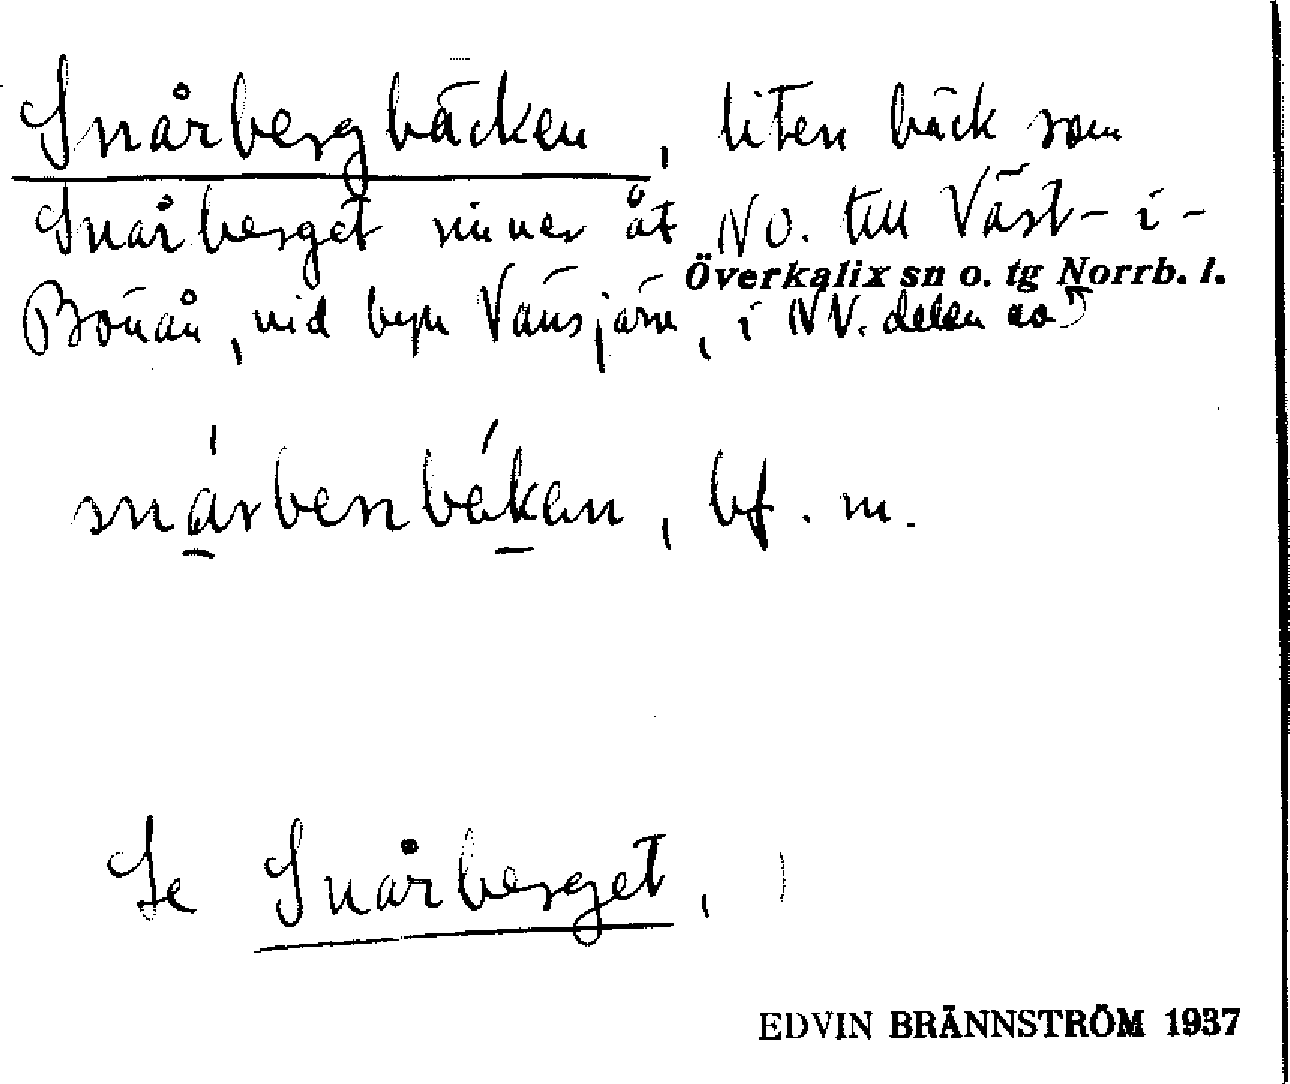 Snårbergbäcken, liten bäck som
Snårberget rinner åt NO. till Väst-i-
Överkalix sn o. tg Norrb. l.
Bönån, vid byn Vänsjärv, i NV. delen av
snarberrbäkan, bf. m.
Se Snårberget,
EDVIN BRÄNNSTRÖM 1937